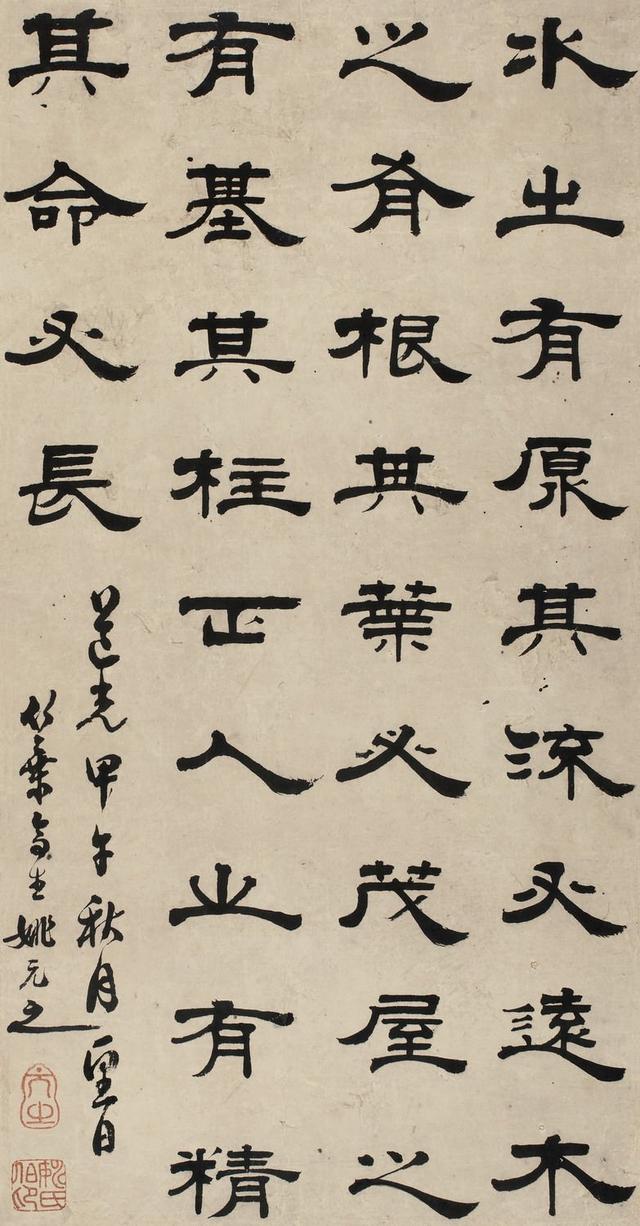 水之有原其流必遠木
之有根其葉必茂屋之
有基其柱正人之有精
其命必長
道光甲午秋月望日
竹葉亭生姚元之
元之